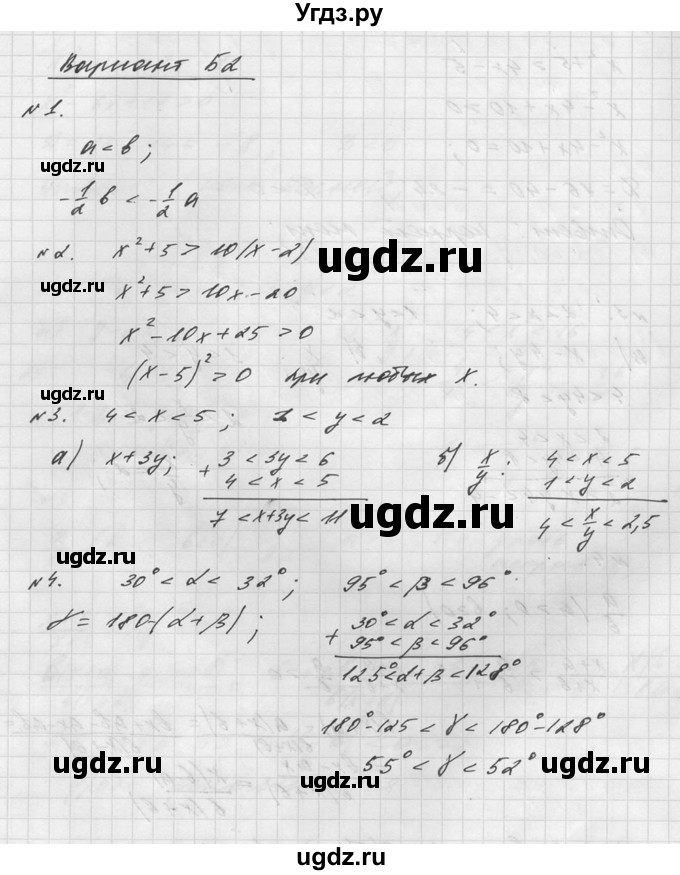 Угдз.ру
Вариант Б2
№1.
a < b;
ugdz.ru
-1/2 b < -1/2 a
№2. x²+5 > 10(x-2)
ugdz.ru
ugdz.ru
x²+5 > 10x-20
x²-10x+25 > 0
(x-5)² > 0 при любых x.
ugdz.ru
№3. 4 < x < 5; 1 < y < 2
а) x+3y; 3 < 3y < 6
+ 4 < x < 5
7 < x+3y < 11
б) x/y: 4 < x < 5
1 < y < 2
4 < x/y < 2,5
ugdz.ru
ugdz.ru
№4. 30° < α < 32°; 95° < β < 96°
γ = 180-(α+β); 30° < α < 32°
+ 95° < β < 96°
125° < α+β < 128°
180°-125 < γ < 180°-128°
55° < γ < 52°
ugdz.ru
ugdz.ru
ugdz.ru
ugdz.ru